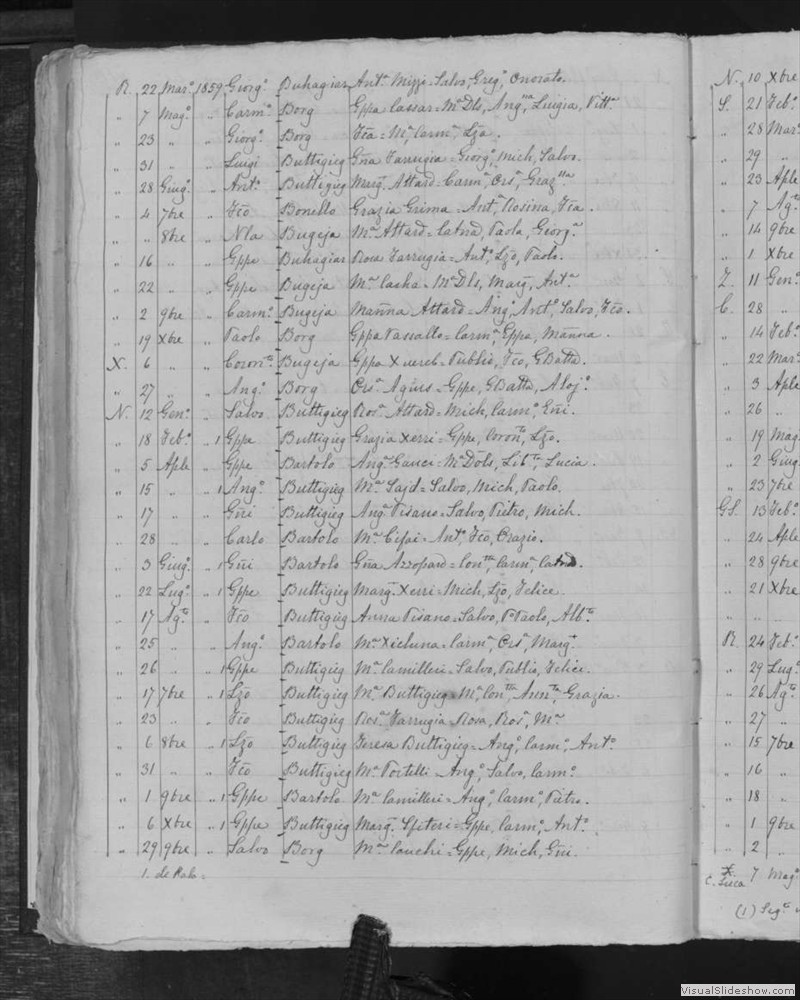 R. 22 Mar.º 1859 Giorg.º Buhagiar Ant.ª Mizzi = Salvo, Greg.º, Onorato.
„ 7 Mag.º „ Carm.º Borg Gppa Cassar = M.ª Dls, Ang.na, Luigia, Vitt.ª
„ 23 „ „ Giorg.º Borg Fca = M.ª, Carm.ª, Lza.
„ 31 „ „ Luigi Buttigieg Gña Farrugia = Giorg.º, Mich, Salvo.
„ 28 Giug.º „ Ant.º Buttigieg Marg. Attard = Carm.ª, Ors.ª, Graz.lla
„ 4 7bre „ Fco Bonello Grazia Grima = Ant.ª, Rosina, Fca.
„ „ 8bre „ Nla Bugeja M.ª Attard = Catnã, Paola, Giorg.ª
„ 16 „ „ Gppe Buhagiar Rosa Farrugia = Ant.º, Lzo, Paolo.
„ 22 „ „ Gppe Bugeja M.ª Casha = M.ª Dls, Marg, Ant.ª
„ 2 9bre „ Carm.º Bugeja Manña Attard = Ang.º, Ant.º, Salvo, Fco.
„ 19 Xbre „ Paolo Borg Gppa Vassallo = Carm.ª, Gppa, Manna.
X. 6 „ „ Coron.to Bugeja Gppa Xuereb = Publio, Fco, GBatta.
„ 27 „ „ Ang.º Borg Ors.ª Agius = Gppe, GBatta, Aloj.º
N. 12 Gen.º „ Salvo Buttigieg Ros.ª Attard = Mich, Carm.º, Gñi.
„ 18 Feb.º „ 1 Gppe Buttigieg Grazia Xerri = Gppe, Coron.to, Lzo.
„ 5 Aple „ Gppe Bartolo Ang.ª Gauci = M.ª Dols, Lib.ta, Lucia.
„ 15 „ „ 1 Ang.º Buttigieg M.ª Sajd = Salvo, Mich, Paolo.
„ 17 „ „ Gñi Buttigieg Ang.ª Pisano = Salvo, Pietro, Mich.
„ 28 „ „ Carlo Bartolo M.ª Cifai = Ant.º, Fco, Orazio.
„ 3 Giug.º „ 1 Gñi Bartolo Gña Azzopard = Con.tta, Carm.ª, Catnã.
„ 22 Lug.º „ 1 Gppe Buttigieg Marg. Xerri = Mich, Lzo, Felice.
„ 17 Ag.to „ Fco Buttigieg Anna Pisano = Salvo, P. Paolo, Alb.to
„ 25 „ „ Ang.º Bartolo M.ª Xicluna = Carm.ª, Ors.ª, Marg.
„ 26 „ „ 1 Gppe Buttigieg M.ª Camilleri = Salvo, Publio, Felice.
„ 17 7bre „ 1 Lzo Buttigieg M.ª Buttigieg = M.ª Con.tta, Ann.ta, Grazia.
„ 23 „ „ Fco Buttigieg Ros.ª Farrugia = Rosa, Ros.ª, M.ª
„ 6 8bre „ 1 Lzo Buttigieg Teresa Buttigieg = Ang.º, Carm.º, Ant.º
„ 31 „ „ Fco Buttigieg M.ª Portelli = Ang.º, Salvo, Carm.º
„ 1 9bre „ 1 Gppe Bartolo M.ª Camilleri = Ang.º, Carm.º, Pietro.
„ 6 Xbre „ 1 Gppe Buttigieg Marg. Spiteri = Gppe, Carm.º, Ant.º
„ 29 9bre „ Salvo Borg M.ª Cauchi = Gppe, Mich, Gñi.
1. de Rabo =
N. 10 Xbre
S. 21 Feb.º
„ 28 Mar.º
„ 29 „
„ 23 Aple
„ 7 Ag.to
„ 14 9bre
„ 1 Xbre
Z. 11 Gen.º
C. 28 „
„ 14 Feb.º
„ 22 Mar.º
„ 3 Aple
„ 26 „
„ 19 Mag
„ 2 Giug
„ 23 7bre
GS. 13 Feb.º
„ 24 Aple
„ 28 9bre
„ 21 Xbre
„ „ „
R. 24 Feb.º
„ 29 Lug.º
„ 26 Ag.to
„ 27 „
„ 15 7bre
„ 16 „
„ 18 „
„ 1 9bre
„ 2 „
X. 7 Mag.º
(1) Seg.te
VisualSlideshow.com